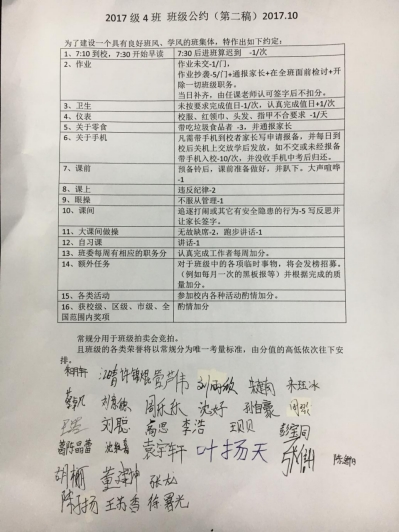 2017 级 4 班 班级公约（第二稿）2017.10
为了建设一个具有良好班风、学风的班集体，特作出如下约定：
1、7:10 到校，7:30 开始早读 7:30 后进班算迟到 -1/次
2、作业 作业未交-1/门，
作业抄袭-5/门+通报家长+在全班面前检讨+开
除一切班级职务。
当日补齐，由任课老师认可签字后不扣分。
3、卫生 未按要求完成值日-1/次，认真完成值日+1/次
4、仪表 校服、红领巾、头发、指甲不合要求 -1/天
5、关于零食 带吃垃圾食品者 -3，并通报家长
6、关于手机 凡需带手机到校者家长写申请报备，并每日到
校后关机上交放学后发放，如不交或未经报备
带手机入校-10/次，并没收手机中考后归还。
7、课前 预备铃后，课前准备做好，并趴下。大声喧哗
-1
8、课上 违反纪律-2
9、眼操 不服从管理-1
10、课间 追逐打闹或其它有安全隐患的行为-5 写反思并
让家长签字。
11、大课间做操 无故缺席-2，跑步讲话-1
12、自习课 讲话-1
13、班委每周有相应的职务分 认真完成工作者每周加分。
14、额外任务 对于班级中的各项临时事物，将会发榜招募。
（例如每月一次的黑板报等）并根据完成的质
量加分。
15、各类活动 参加校内各种活动酌情加分。
16、获校级、区级、市级、全 酌情加分
国范围内奖项
常规分用于班级拍卖会竞拍。
且班级的各类荣誉将以常规分为唯一考量标准，由分值的高低依次往下安
排。
朱珏冰
周乐乐 沈好
刘聪 高思 李浩
袁宇轩 叶扬天
胡栅 董泽坤 张龙
陈于扬 徐曙光